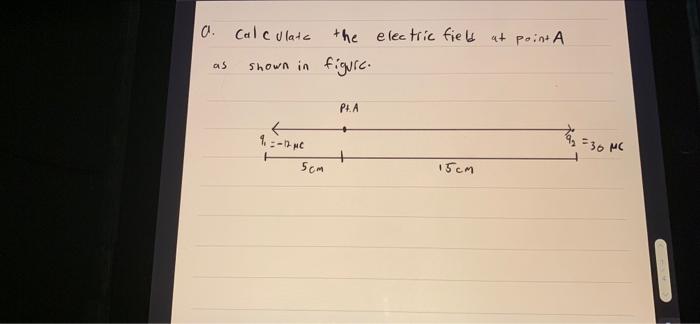 a. Calculate the electric field at point A
as shown in figure.
Pt. A
q₁ = -12 μC
q₂ = 30 μC
5cm
15cm